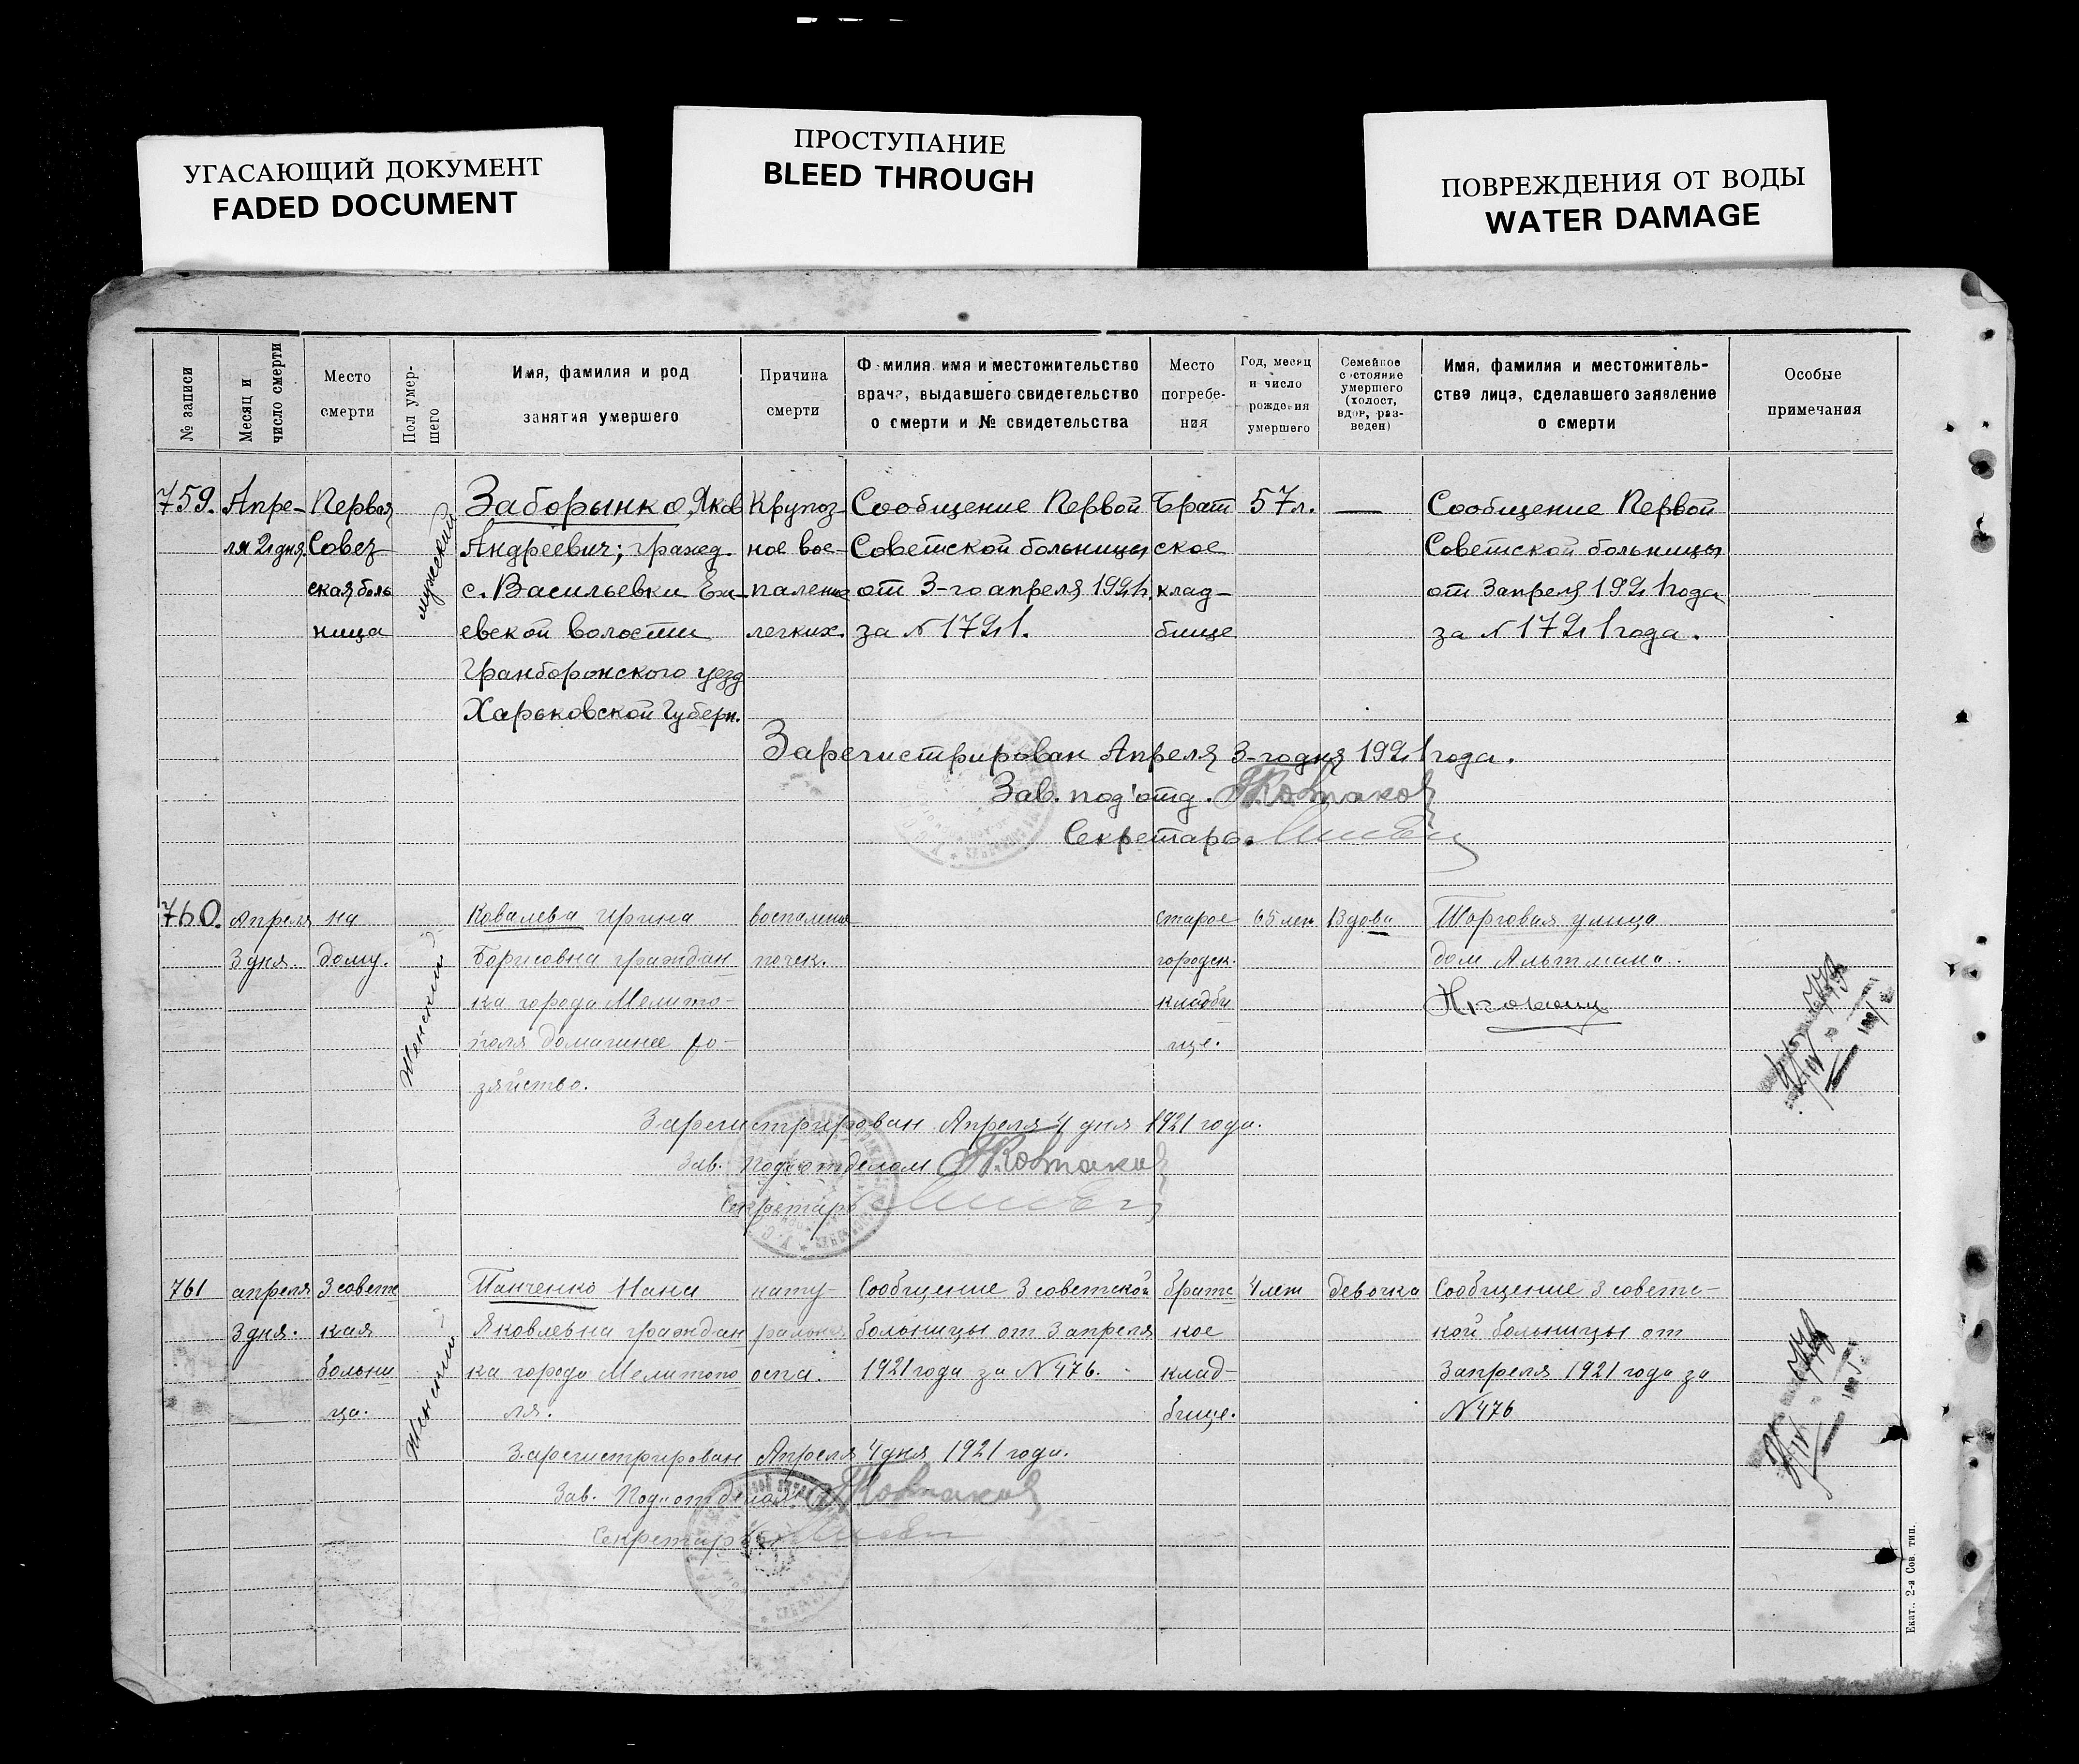 УГАСАЮЩИЙ ДОКУМЕНТ
FADED DOCUMENT
ПРОСТУПАНИЕ
BLEED THROUGH
ПОВРЕЖДЕНИЯ ОТ ВОДЫ
WATER DAMAGE
№ записи
Месяц и
число смерти
Место
смерти
Пол умер-
шего
Имя, фамилия и род
занятия умершего
Причина
смерти
Ф милия, имя и местожительство
врача, выдавшего свидетельство
о смерти и № свидетельства
Место
погребе-
ния
Год, месяц
и число
рождения
умершего
Семейное
состояние
умершего
(холост,
вдов, раз-
веден)
Имя, фамилия и местожитель-
ства лица, сделавшего заявление
о смерти
Особые
примечания
759.
Апре-
ля 2 дня
Первая
Совет
ская боль
ница
мужеский
Заборынко Яков
Андреевич; гражд.
с. Васильевки
евской волости
уезд
Харьковской Губерн.
Крупоз-
ное вос-
паление
легких.
Сообщение Первой
Советской больницы
от 3-го апреля 1921г.
за № 1721.
Брат
ское
клад-
бище
57 л.
—
Сообщение Первой
Советской больницы
от 3 апреля 1921 года
за № 1721 года.
Зарегистрирован Апреля 3-го дня 1921 года.
Зав. под'отд.
Секретарь
760.
Апреля
3 дня.
на
дому.
Женский
Ковалева Ирина
Борисовна граждан
ка города Мелито-
поля домашнее хо-
зяйство.
воспаление
почек.
старое
городск.
кладби
ще.
65 лет
Вдова
Торговая улица
дом Альтмана.
Зарегистрирован Апреля 4 дня 1921 года.
Зав. Подъотделом
Секретарь
761
апреля
3 дня.
3 советс
кая
больни
ца.
Женский
Панченко Нана
Яковлевна граждан
ка города Мелитопо
ля.
нату-
ральная
оспа.
Сообщение 3 советской
больницы от 3 апреля
1921 года за № 476.
братс
кое
клад-
бище.
4 лет
девочка
Сообщение 3 советс-
кой больницы от
3 апреля 1921 года за
№ 476
Зарегистрирован Апреля 4 дня 1921 года.
Зав. Подъотделом
Секретарь
Екат., 2-я Сов. тип.